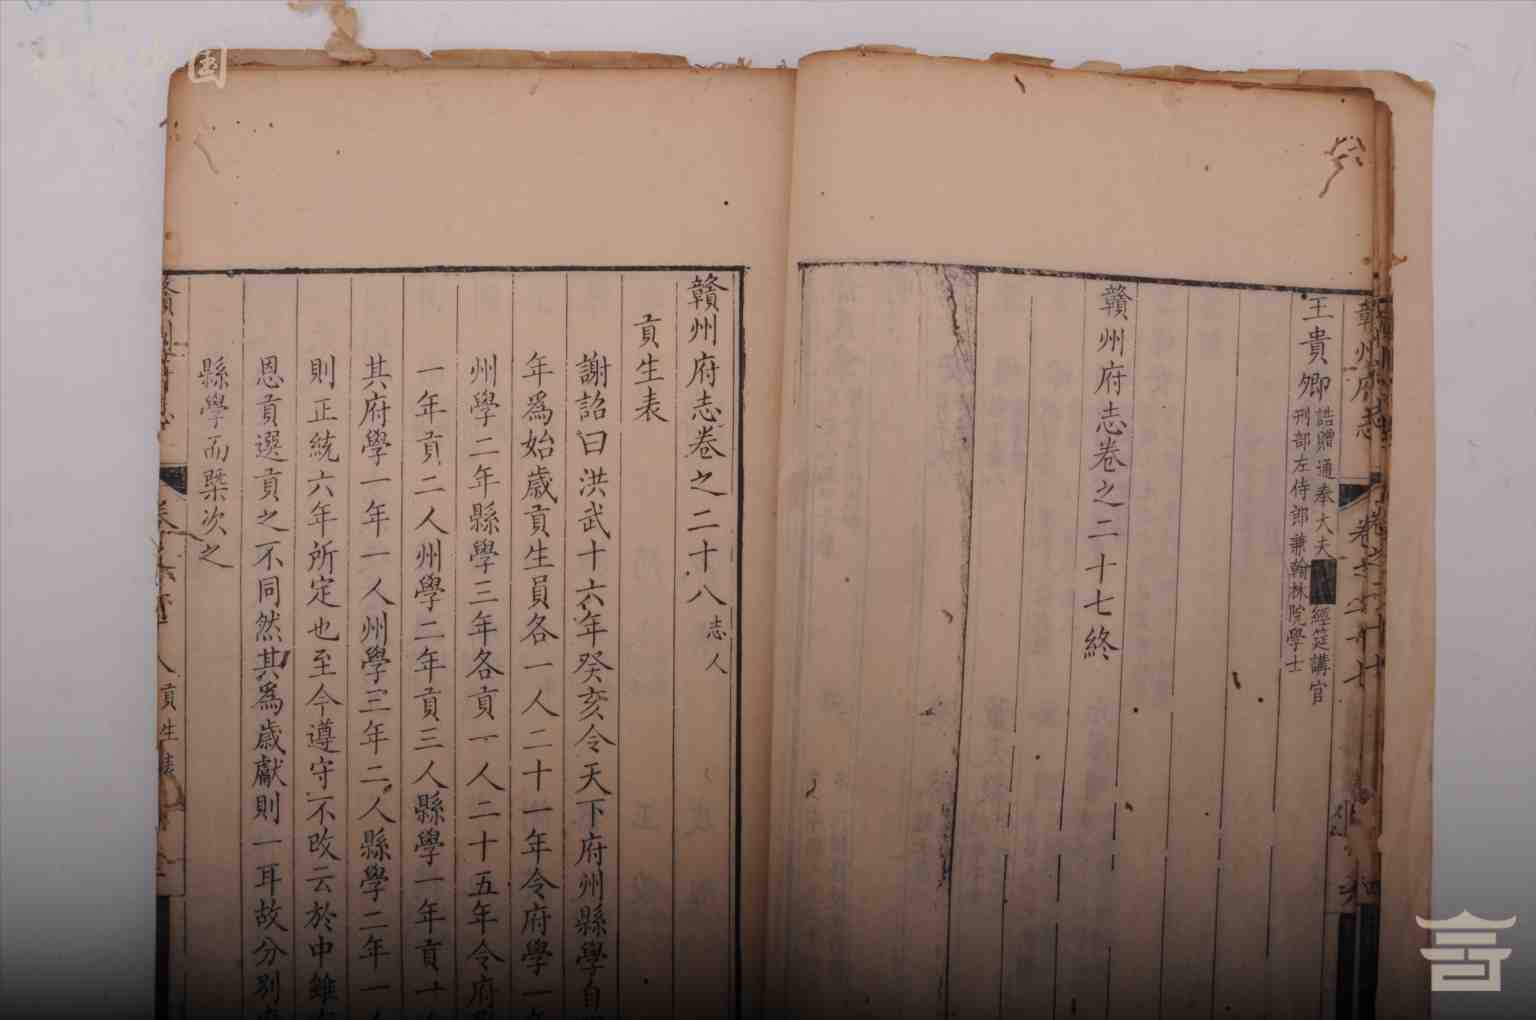 王貴卿 誥贈通奉大夫 經筵講官
刑部左侍郎兼翰林院學士
贛州府志卷之二十七終
贛州府志卷之二十八 志人
貢生表
謝詔曰洪武十六年癸亥令天下府州縣學自
年爲始歲貢生員各一人二十一年令府學一年
州學二年縣學三年各貢一人二十五年令府
一年貢二人州學二年貢三人縣學一年貢一
其府學一年一人州學三年二人縣學二年一人
則正統六年所定也至今遵守不改云於中雖
恩貢選貢之不同然其爲歲獻則一耳故分別
縣學而槩次之
貢生表